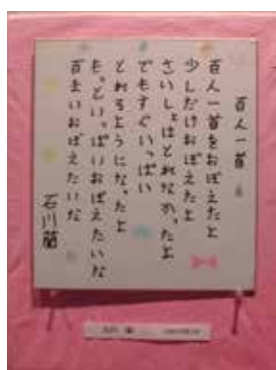 百人一首
百人一首をおぼえたよ
少しだけおぼえたよ
さいしょはとれなかったよ
でもすぐいっぱい
とれるようになったよ
もっといっぱいおぼえたいな
百まいおぼえたいな
石川蘭